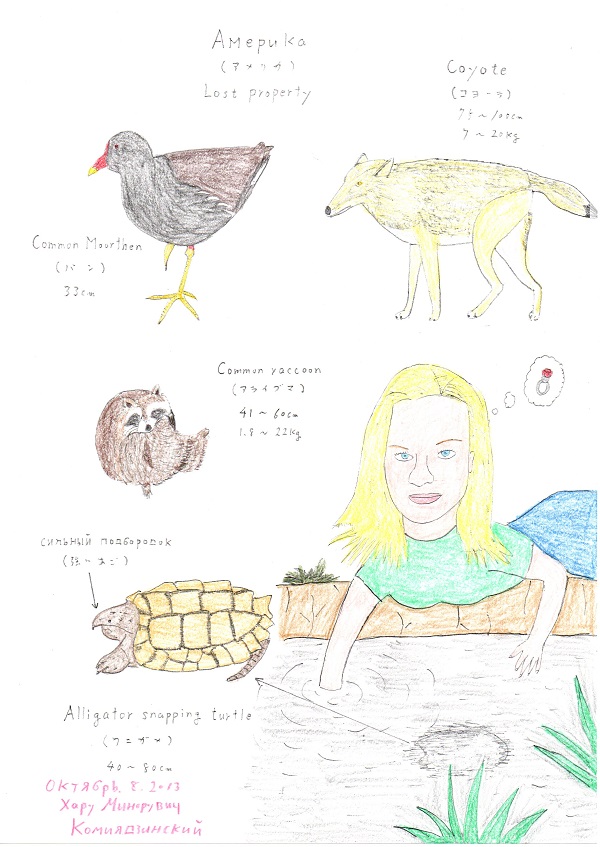 Америка
(アメリカ)
Lost property
Coyote
(コヨーテ)
75~100cm
7~20kg
Common Mourthen
(バン)
33cm
Common raccoon
(アライグマ)
41~60cm
1.8~22kg
сильный подбородок
(強いあご)
Alligator snapping turtle
(ワニガメ)
40~80cm
Октябрь. 8. 2013
Хару Минорувич
Комиядзинский